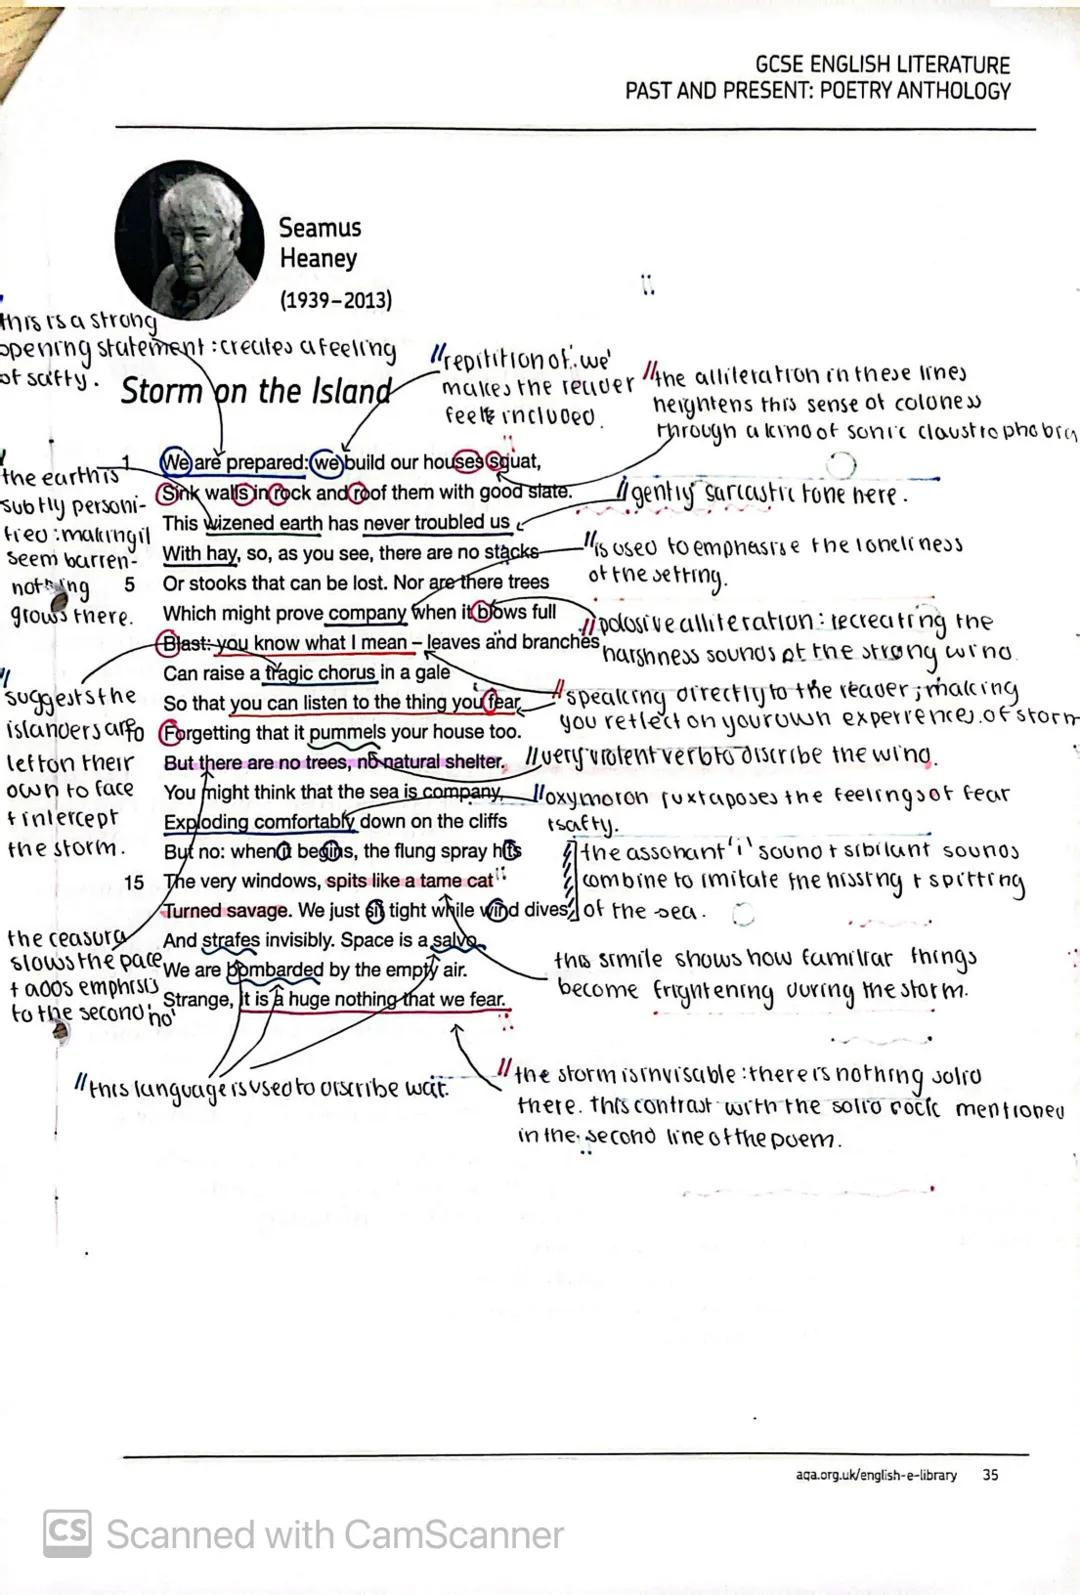 GCSE ENGLISH LITERATURE
PAST AND PRESENT: POETRY ANTHOLOGY
Seamus
Heaney
(1939–2013)
this is a strong
opening statement : creates a feeling
of safty.
Storm on the Island
// repitition of 'we'
makes the reader
feels included.
// the alliteration in these lines
heightens this sense of coloness
through a kind of sonic claustrophobia
the earth is
subtly personi-
fied : making it
seem barren-
nothing
grows there.
1 We are prepared: we build our houses squat,
Sink walls in rock and roof them with good slate.
This wizened earth has never troubled us
With hay, so, as you see, there are no stacks
5 Or stooks that can be lost. Nor are there trees
Which might prove company when it blows full
Blast: you know what I mean – leaves and branches
Can raise a tragic chorus in a gale
So that you can listen to the thing you fear
Forgetting that it pummels your house too.
But there are no trees, no natural shelter.
You might think that the sea is company,
Exploding comfortably down on the cliffs
But no: when it begins, the flung spray hits
15 The very windows, spits like a tame cat
Turned savage. We just sit tight while wind dives
And strafes invisibly. Space is a salvo,
We are bombarded by the empty air.
Strange, it is a huge nothing that we fear.
// gently sarcastic tone here.
// is used to emphasise the loneliness
of the setting.
// polosive alliteration : recreating the
harshness sounds of the strong wind.
// speaking directly to the reader ; making
you reflect on your own experiences of storm
// very violent verb to discribe the wind.
// oxymoron juxtaposes the feelings of fear
+ safty.
the assonant 'i' sound + sibilant sounds
combine to imitate the hissing + spitting
of the sea.
this simile shows how familiar things
become frightening during the storm.
// suggests the
islanders are
left on their
own to face
+ intercept
the storm.
the ceasura
slows the pace
+ adds emphisis
to the second 'no'
// this language is used to discribe wat.
// the storm is invisable : there is nothing solid
there. this contrast with the solid rock mentioned
in the second line of the poem.
aqa.org.uk/english-e-library 35
CS Scanned with CamScanner